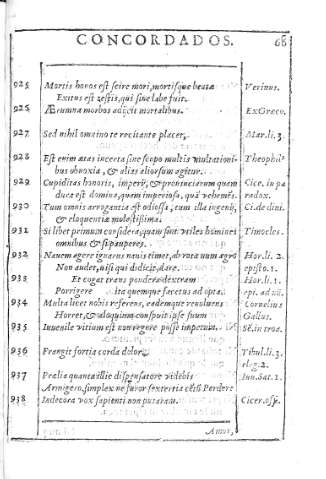 CONCORDADOS. 68
925 Mortis honos est scire mori, mortisque beata Verinus.
Exitus est qui sine labe fuit.
926 Ærumna morbos adijcit mortalibus. Ex Græco.
927 Sed nihil omnino te recitante placet, Mar. li. 3.
928 Est enim ætas incerta sine scopo multis mutationi- Theophil9
bus obnoxia, & alias aliorsum agitur.
929 Cupiditas honoris, imperij, & provinciarum quam Cice. in pa
dura est domina, quam imperiosa, quã vehemẽs. radox.
930 Tum omnis arrogantia est odiosa, tum illa ingenij, Ci. de diui.
& eloquentiæ molestissima.
931 Si libet primum considera, quam sint viles homines Timocles.
omnibus & si pauperes.
932 Navem agere ignarus navis timet, abrotonum ægro Hor. li. 2.
Non audet, nisi qui didicit, dare. episto. 1.
933 Et cogat trans pondera dextram Hor. li. 1.
Porrigere ita quemque facetus adopta. epi. ad
934 Multa licet nobis referens, eademque revolvens Cornelius
Horret, & alloquium conspuit ipse suum Gallus.
935 Iuvenile vitium est non regere posse impetum. Sẽ. in troa.
936 Frangit fortia corda dolor. Tibul. li. 3.
eleg. 2.
937 Prælia quanta illic dispensatore videbis Iuu. Sat. 1.
Armigero, simplex ne furor sextertia cẽtũ Perdere
938 Indecora vox sapienti non putaram. Cicer. offi.
Amor,